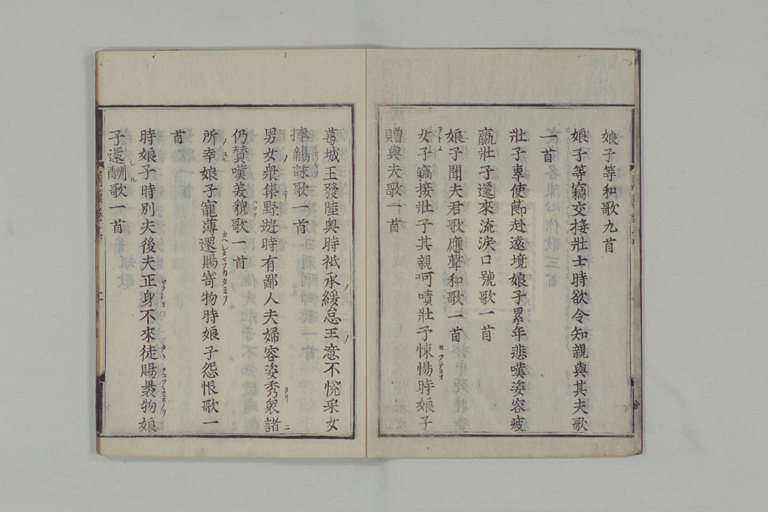 娘子等和歌九首
娘子等竊交接壯士時欲令知親與其夫歌
一首
壯士專使節赴遠境娘子累年悲嘆姿容疲
羸壯子還來流淚口號歌一首
娘子聞夫君歌應聲和歌一首
女子竊接壯子其親呵嘖壯子悚惕時娘子
贈與夫歌一首
葛城王發陸奧時祗承緩怠王意不悅采女
捧觴詠歌一首
男女衆集野遊時有鄙人夫婦容姿秀衆諸
仍贊嘆美貌歌一首
所幸娘子寵薄還賜寄物時娘子怨恨歌一
首
時娘子時別夫後夫正身不來徒賜褁物娘
子還酬歌一首